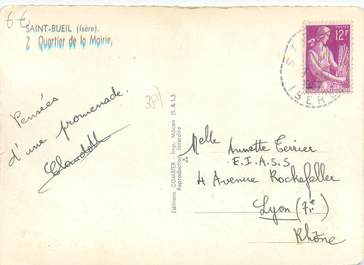 6€
SAINT-BUEIL (Isère).
2 Quartier de la Mairie.
Pensées
d'une promenade.
38)
Editions COMBIER - Imp. Mâcon (S.-&-L.)
Reproduction interdite
12F
ISERE
Melle Annette Terrier
E.I.A.S.S
4 Avenue Rockefeller
Lyon (7e)
Rhône